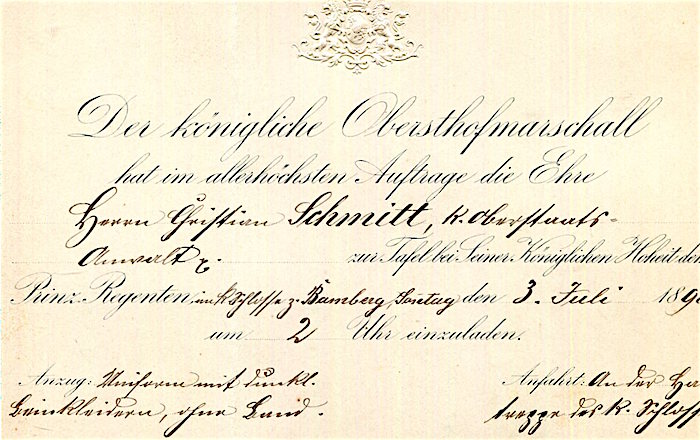 Der königliche Obersthofmarschall
hat im allerhöchsten Auftrage die Ehre
Herrn Christian Schmitt, k. Oberstaats-
Anwalt
zur Tafel bei Seiner Königlichen Hoheit
Prinz-Regenten im k. Schlosse z. Bamberg, Sontag den 3. Juli 189
um 2 Uhr einzuladen.
Anzug: Uniform mit dunkl.
Beinkleidern, ohne Band.
Anfahrt: An der
treppe des k. Schloss